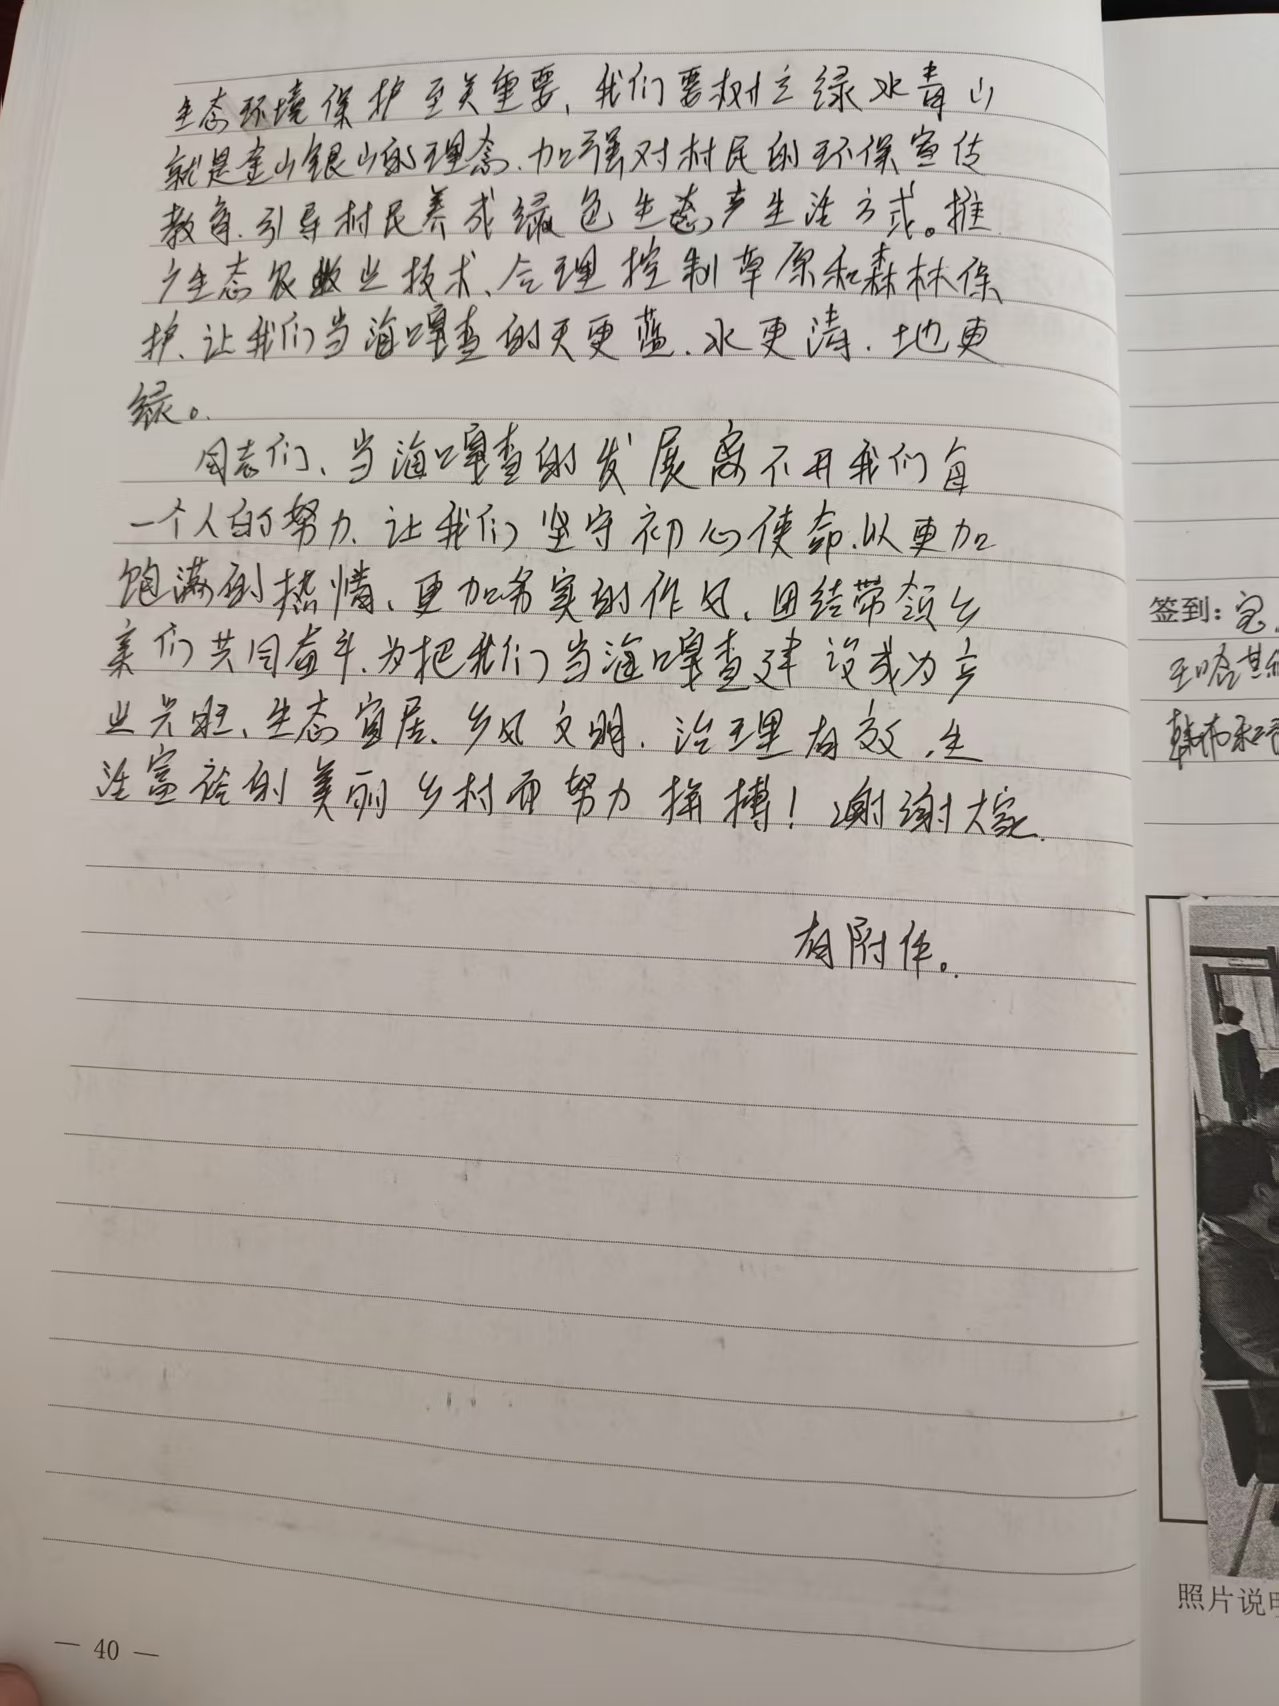 生态环境保护至关重要，我们要树立绿水青山
就是金山银山的理念、加强对村民的环保宣传
教育、引导村民养成绿色生态产生活方式。推
广生态农牧业技术、合理控制草原和森林保
护、让我们当海嘎查的天更蓝、水更清、地更
绿。
同志们、当海嘎查的发展离不开我们每
一个人的努力、让我们坚守初心使命、以更加
饱满的热情、更加务实的作风、团结带领乡
亲们共同奋斗、为把我们当海嘎查建设成为产
业兴旺、生态宜居、乡风文明、治理有效、生
活富裕的美丽乡村而努力拼搏！谢谢大家.
有附件。
— 40 —
签到：宝
照片说明